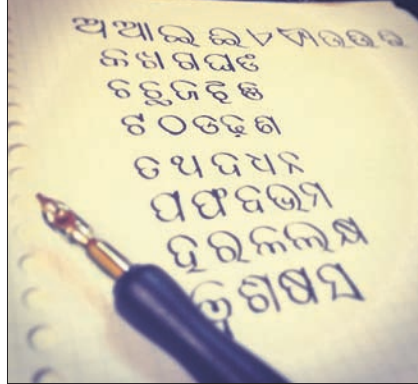 ଅ ଆ ଇ ଈ
କ ଖ ଗ ଘ ଙ
ଚ ଛ ଜ ଝ ଞ
ଟ ଠ ଡ ଢ ଣ
ତ ଥ ଦ ଧ ନ
ପ ଫ ବ ଭ ମ
ର ଳ ଲ କ୍ଷ
ଶ ଷ ସ